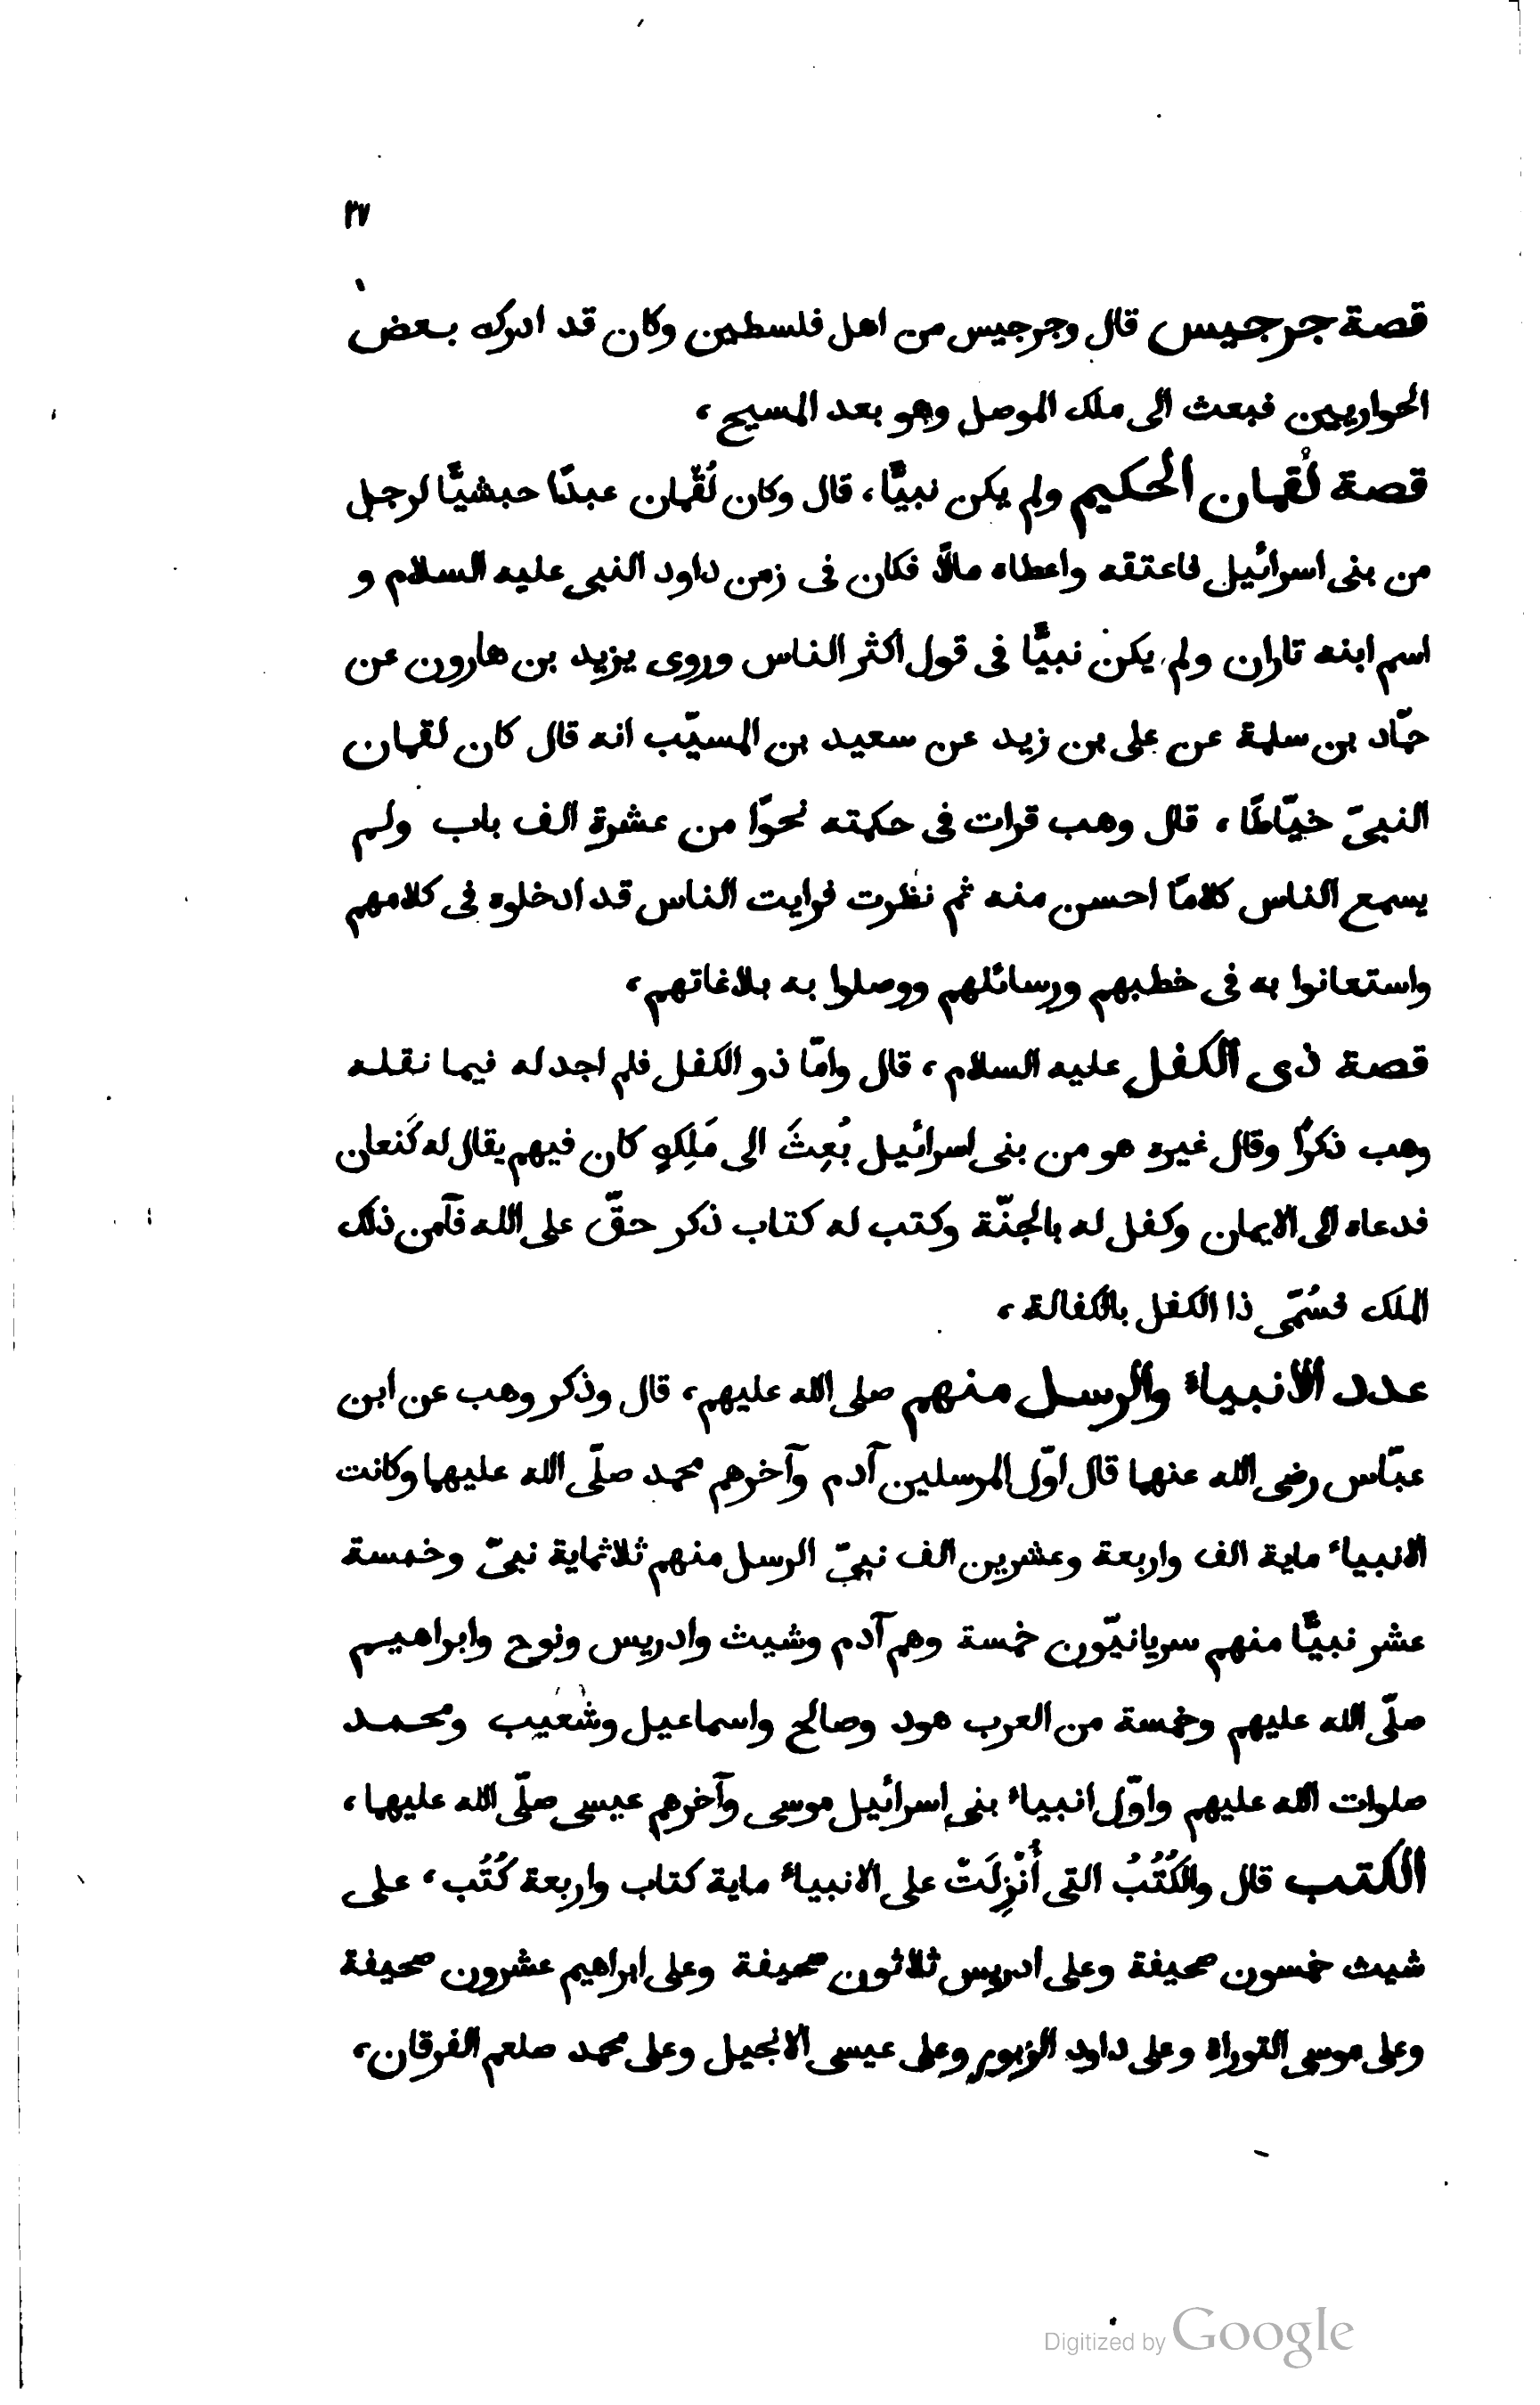 ٢٧
قصة جرجيس قال وجرجيس من اهل فلسطين وكان قد ادركه بعض
الحواريين فبعث الى ملك الموصل وهو بعد المسيح،
قصة لُقمان الحكيم ولم يكن نبيًّا، قال وكان لُقْمان عبدًا حبشيًّا لرجل
من بنى اسرائيل فاعتقه واعطاه مالًا فكان فى زمن داود النبى عليه السلام و
اسم ابنه تاران ولم يكن نبيًّا فى قول اكثر الناس وروى يزيد بن هارون عن
حمّاد بن سلمة عن على بن زيد عن سعيد بن المسيّب انه قال كان لقمان
النبىّ خيّاطًا، قال وهب قرات فى حكمته نحوًا من عشرة الف باب ولم
يسمع الناس كلامًا احسن منه ثم نظرت فرايت الناس قد ادخلوه فى كلامهم
واستعانوا به فى خطبهم ورسائلهم ووصلوا به بلاغاتهم،
قصة ذى الكفل عليه السلام، قال وامّا ذو الكفل فلم اجد له فيما نقله
وهب ذكرًا وقال غيره هو من بنى اسرائيل بُعِثَ الى مَلِكٍ كان فيهم يقال له كَنعان
فدعاه الى الايمان وكفل له بالجنّة وكتب له كتاب ذكر حقّ على الله فآمن ذلك
الملك فسُمّى ذا الكفل بالكفالة،
عدد الانبياء والرسل منهم صلى الله عليهم، قال وذكر وهب عن ابن
عبّاس رضى الله عنهما قال اوّل المرسلين آدم وآخرهم محمد صلّى الله عليهما وكانت
الانبياء ماية الف واربعة وعشرين الف نبىّ الرسل منهم ثلاثماية نبىّ وخمسة
عشر نبيًّا منهم سريانيّون خمسة وهم آدم وشيث وادريس ونوح وابراهيم
صلّى الله عليهم وخمسة من العرب هود وصالح واسماعيل وشُعَيب ومحمد
صلوات الله عليهم واوّل انبياء بنى اسرائيل موسى وآخرهم عيسى صلّى الله عليهما،
الكتب قال والكُتُبُ التى أُنْزِلَتْ على الانبياء ماية كتاب واربعة كُتُب، على
شيث خمسون صحيفة وعلى ادريس ثلاثون صحيفة وعلى ابراهيم عشرون صحيفة
وعلى موسى التوراة وعلى داود الزبور وعلى عيسى الانجيل وعلى محمد صلعم الفرقان،
Digitized by Google